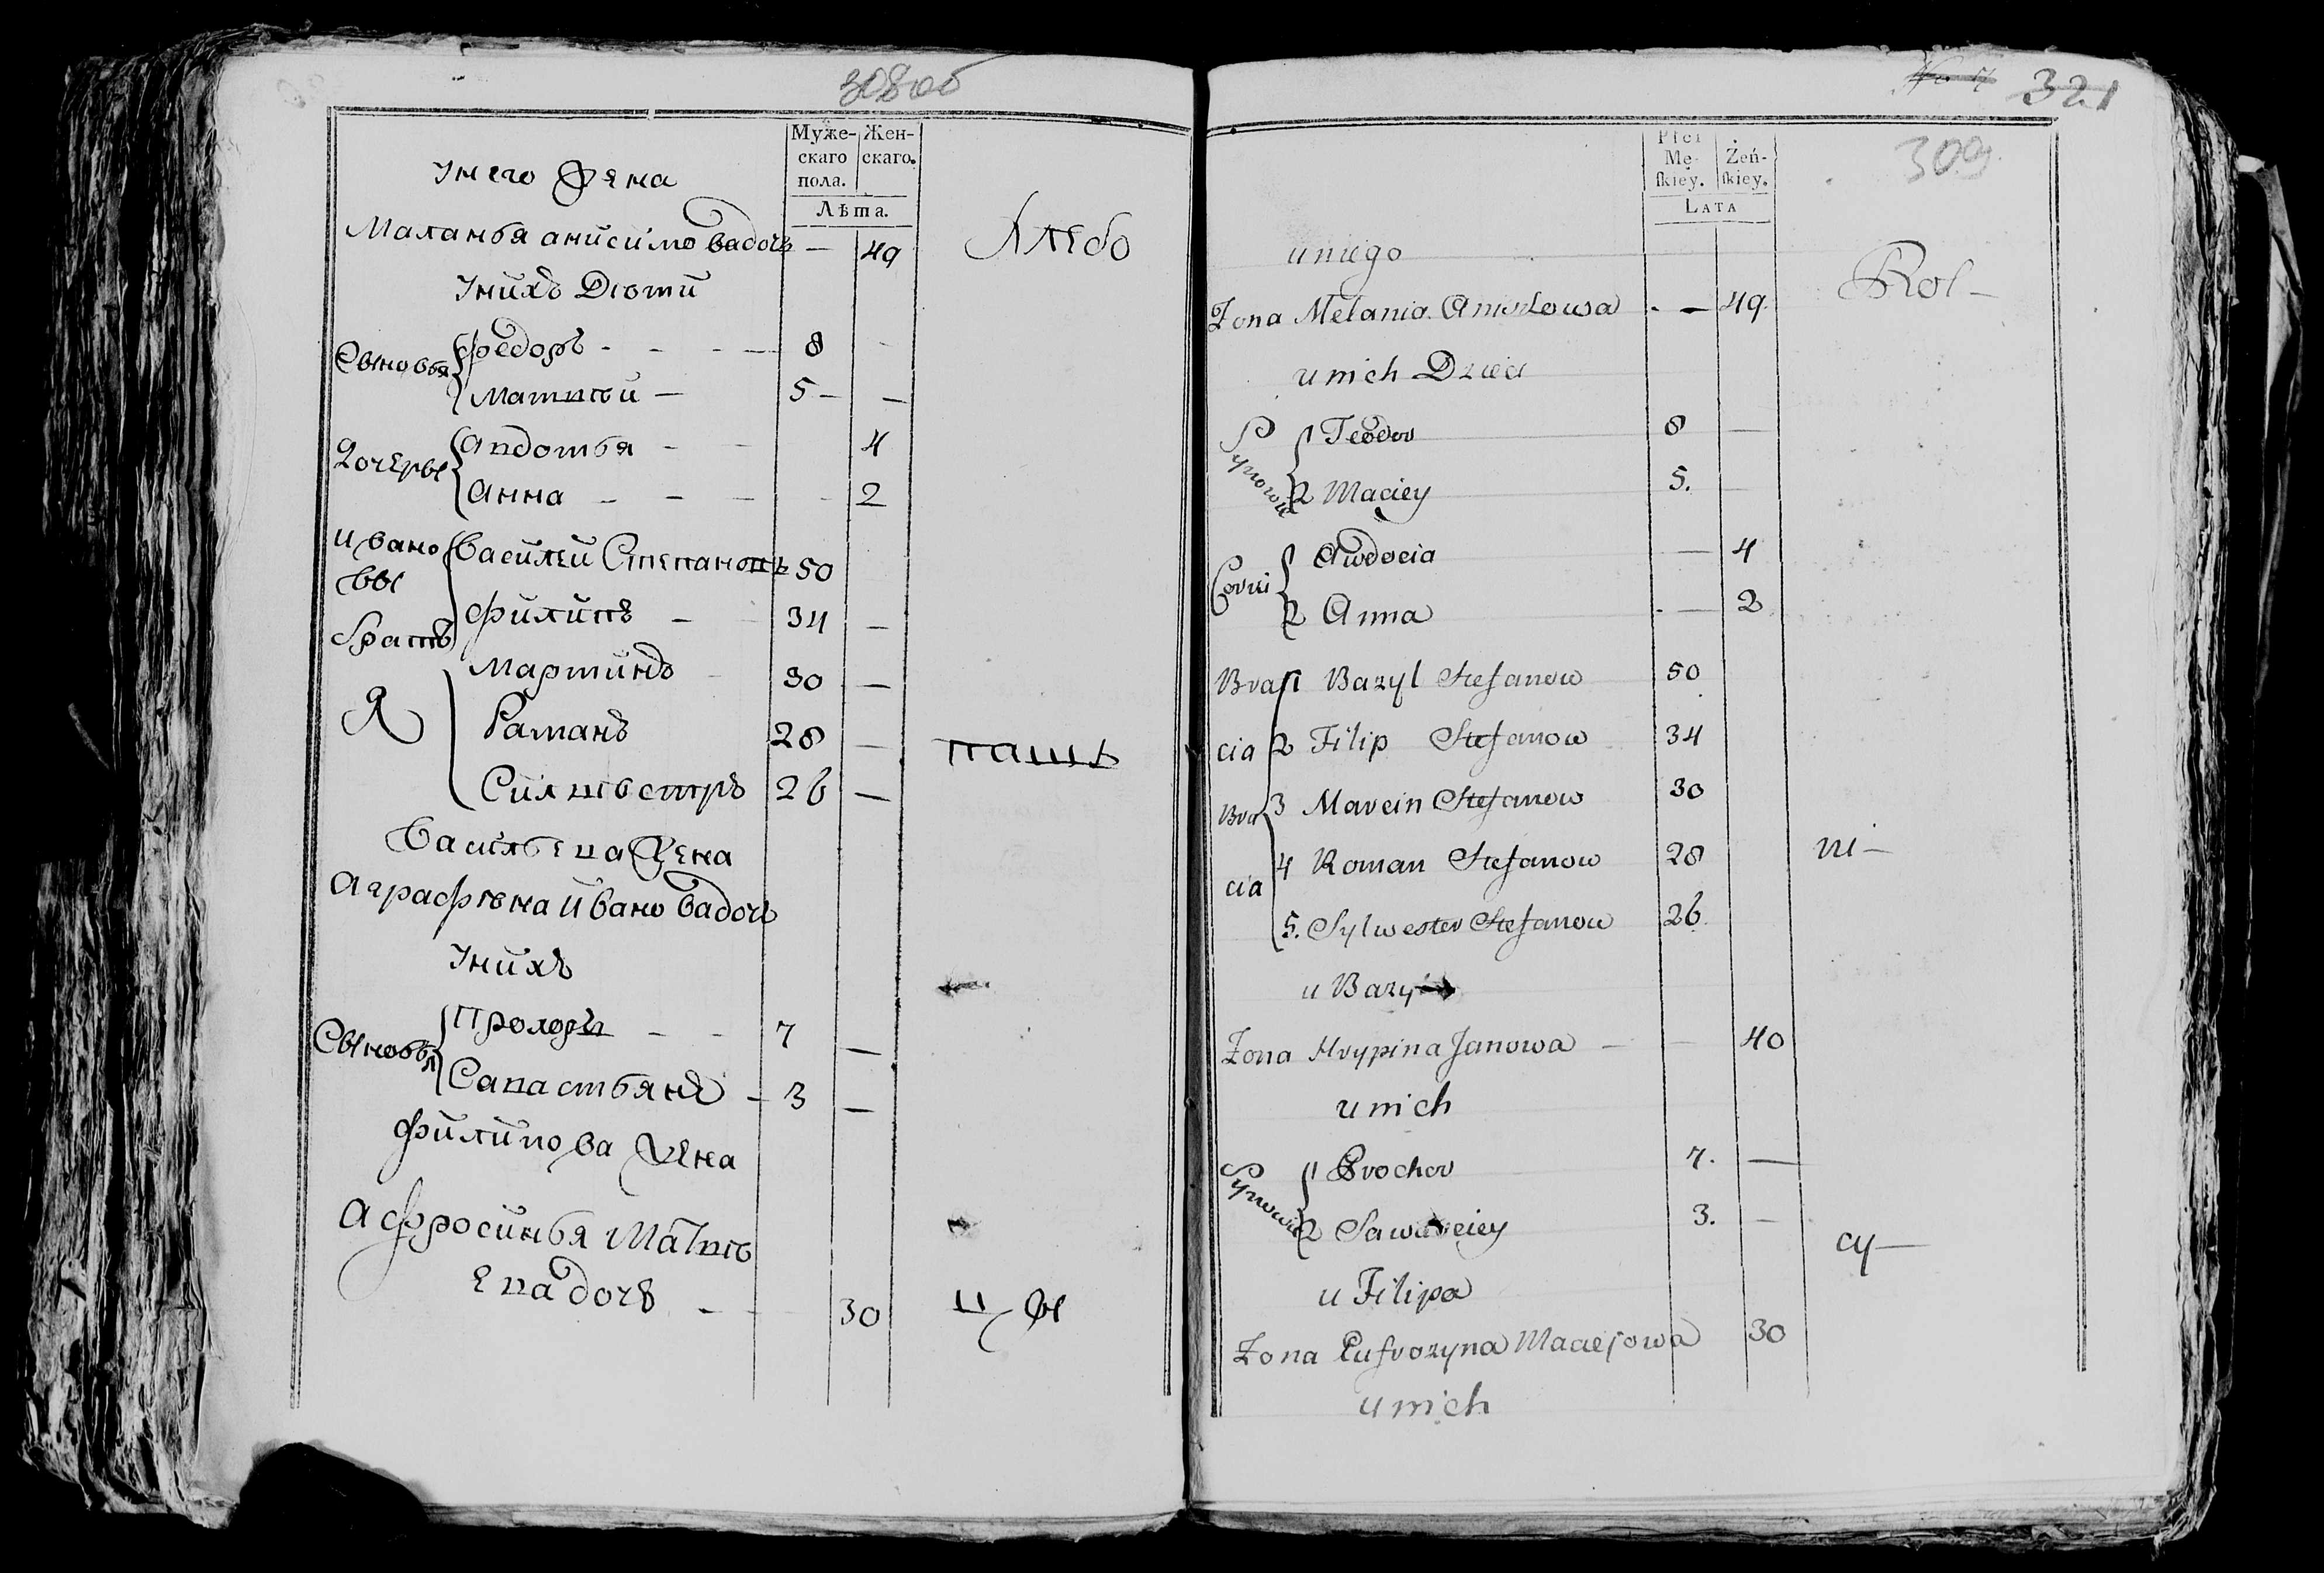 308 об
Муже-скаго пола. Жен-скаго.
Лѣта.
Унего Жена
Маланья анисимовадочь — 49
Унихъ Дѣти
Сыновья
Федоръ - - - — 8 -
Матвѣй — 5 — —
Дочеры
Авдотья - - 4
Анна - - - - 2
Ивано
вы
братья
Василей Степановъ 50
Филипъ - 34 —
Мартинъ 30 —
Раманъ 28 —
Силивестръ 26 —
Васильева Жена
Аграфѣна Ивановадочь
Унихъ
Сыновья
Прохоръ - - 7 —
Савастьянъ - 3 —
Филипова Жена
Афросинья Матвѣ
евадочь - - 30
Хлебо
паш
цы
321
309
Płci Mę-ſkiey. Żeń-ſkiey.
LATA
u niego
Zona Melania Aniszkowa - — 49
u nich Dzieci
Synowie
1 Teodor 8 —
2 Maciey 5. —
Corki
1 Awdocia — 4
2 Anna - — 2
Bra
cia
1 Bazyl Stefanow 50
2 Filip Stefanow 34
Bra
cia
3 Marcin Stefanow 30
4 Roman Stefanow 28
5. Sylwester Stefanow 26
u Bazyla
Zona Hrypina Janowa — — 40
u nich
Synowie
1 Prochor 7. —
2 Sawasciey 3. —
u Filipa
Zona Eufrozyna Maciejowa 30
u nich
Rol-
ni-
cy-